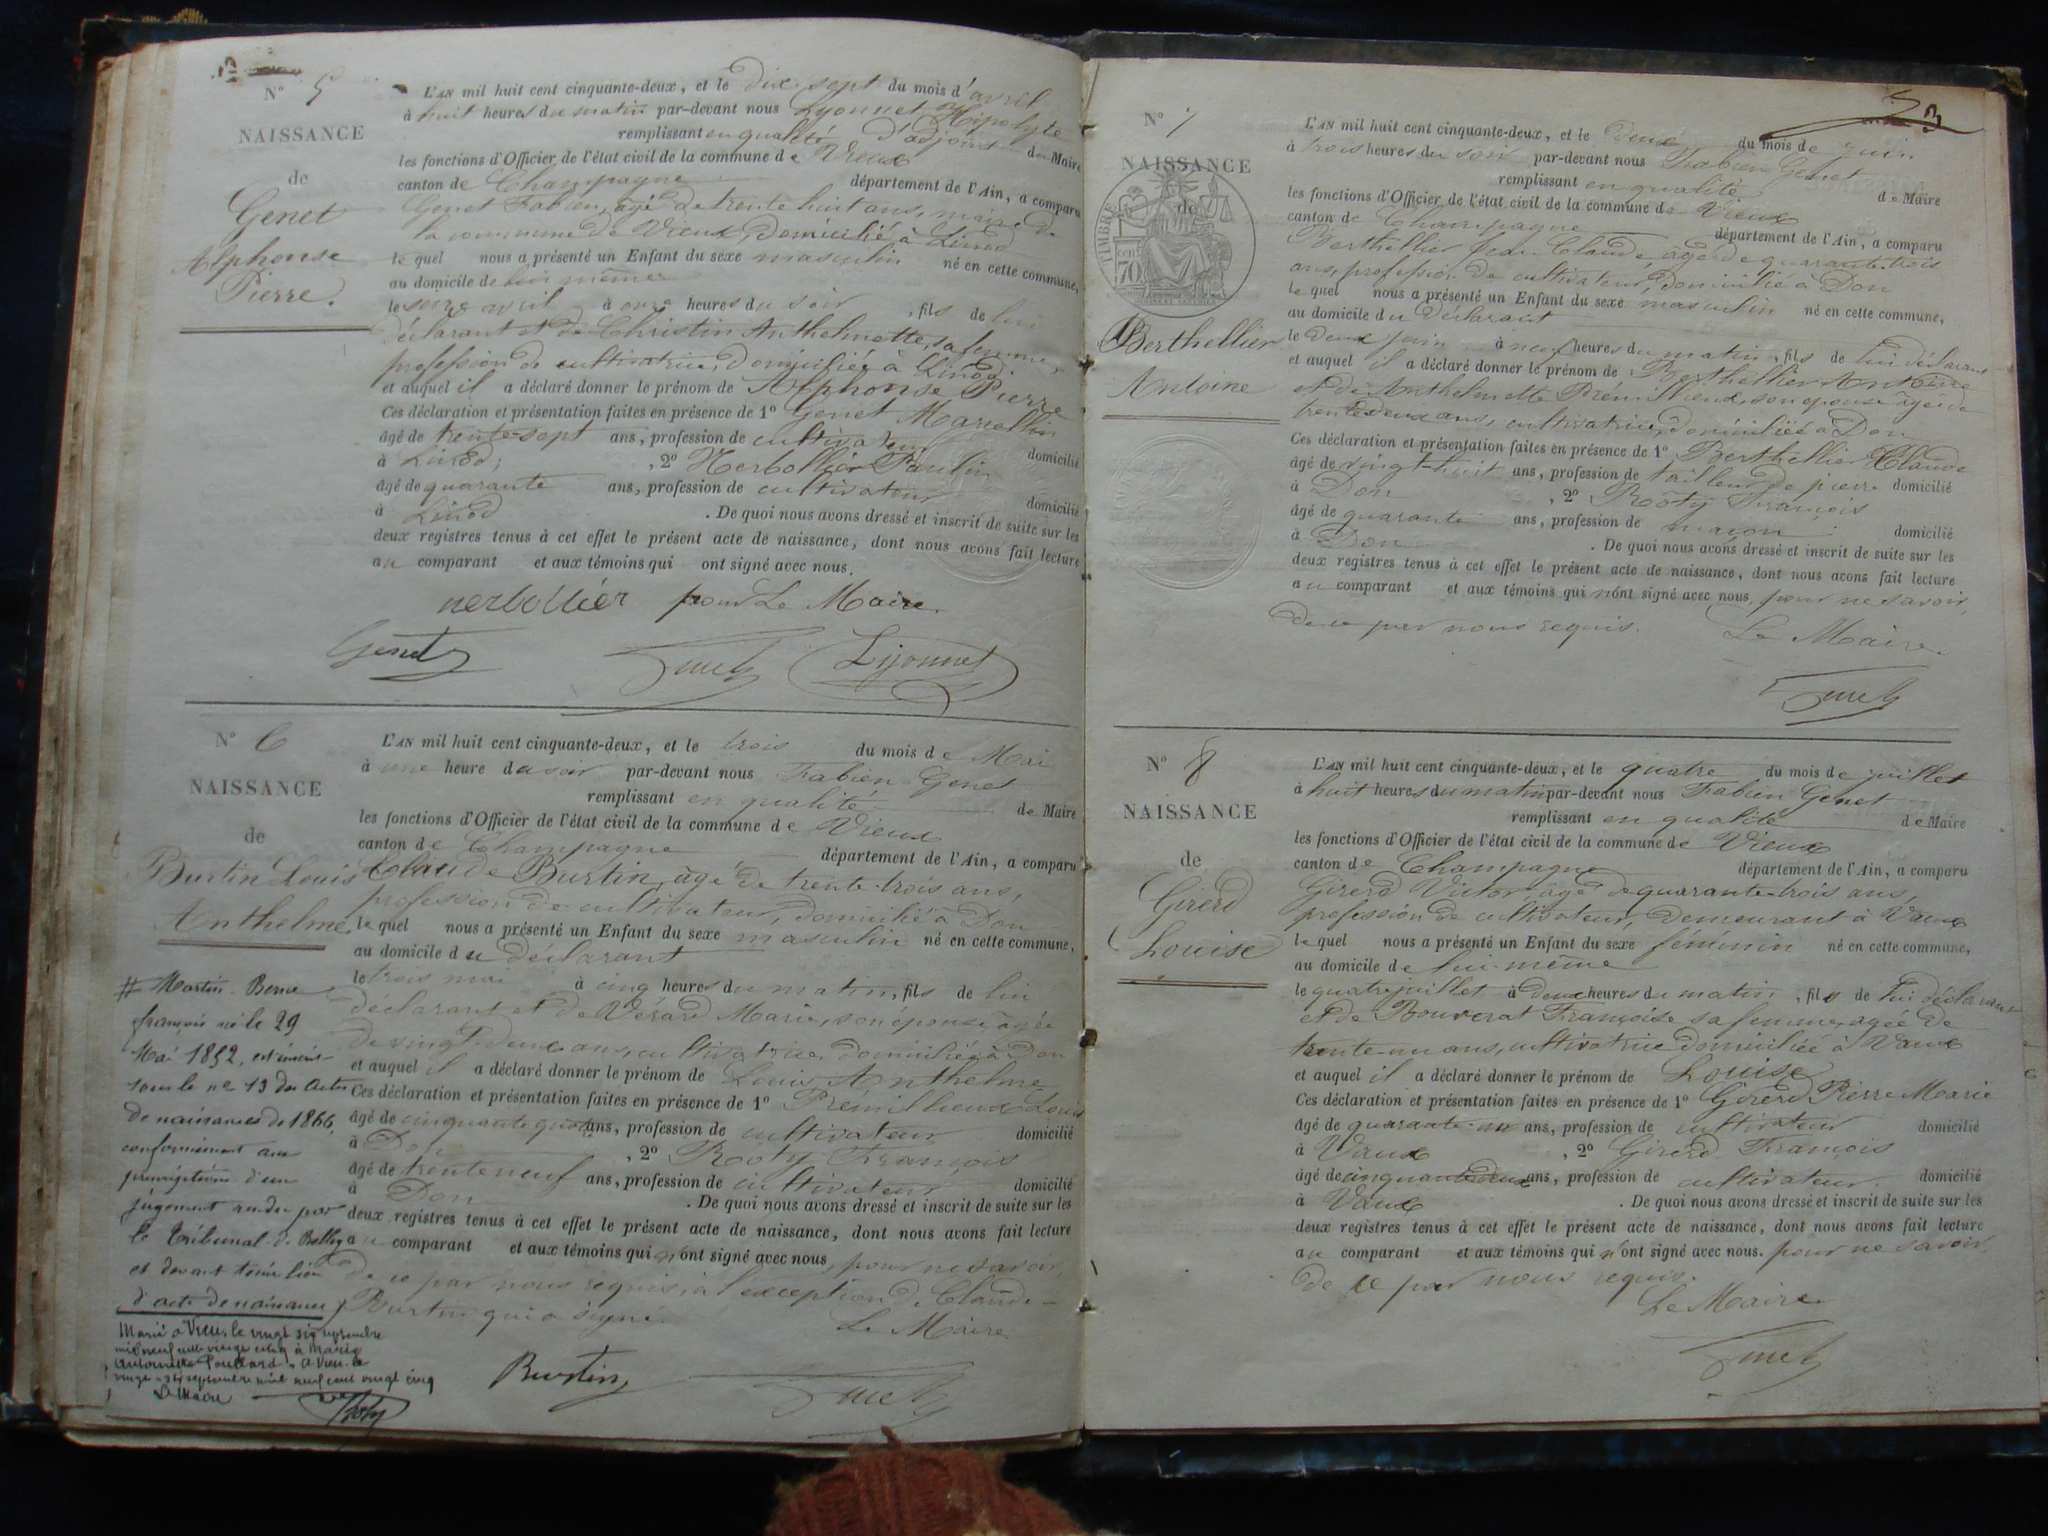 N° 5
NAISSANCE
de
Genet
Alphonse
Pierre.
L'AN mil huit cent cinquante-deux, et le dix-sept du mois d'avril
à huit heures du matin par-devant nous Lyonnet Hipolyte
remplissant en qualité d'adjoint de Maire
les fonctions d'Officier de l'état civil de la commune de Vieux
canton de Champagne département de l'Ain, a comparu
Genet Fabien, âgé de trente huit ans, maire de
la commune de Vieux, domicilié à Linod
le quel nous a présenté un Enfant du sexe masculin né en cette commune,
au domicile de lui même
le seize avril à onze heures du soir, fils de lui
déclarant et de Christin Anthelmette, sa femme,
profession de cultivatrice, domiciliée à Linod,
et auquel il a déclaré donner le prénom de Alphonse Pierre
Ces déclaration et présentation faites en présence de 1° Genet Marcellin
âgé de trente-sept ans, profession de cultivateur domicilié
à Linod; , 2° Nerbollier Paulin
âgé de quarante ans, profession de cultivateur domicilié
à Linod . De quoi nous avons dressé et inscrit de suite sur les
deux registres tenus à cet effet le présent acte de naissance, dont nous avons fait lecture
au comparant et aux témoins qui ont signé avec nous.
nerbollier pour Le Maire.
Genet Lyonnet
N° 6
NAISSANCE
de
Burtin Louis
Anthelme
L'AN mil huit cent cinquante-deux, et le trois du mois de Mai
à une heure du soir par-devant nous Fabien Genet
remplissant en qualité de Maire
les fonctions d'Officier de l'état civil de la commune de Vieux
canton de Champagne département de l'Ain, a comparu
Claude Burtin, âgé de trente-trois ans,
profession de cultivateur, domicilié à Don
le quel nous a présenté un Enfant du sexe masculin né en cette commune,
au domicile du déclarant
le trois mai à cinq heures du matin, fils de lui
déclarant et de Vérard Marie, son épouse, âgée
de vingt-deux ans, cultivatrice, domiciliée à Don
et auquel il a déclaré donner le prénom de Louis Anthelme
Ces déclaration et présentation faites en présence de 1° Prémillieux Louis
âgé de cinquante quatre ans, profession de cultivateur domicilié
à Don , 2° Rooty François
âgé de trente neuf ans, profession de cultivateur domicilié
à Don . De quoi nous avons dressé et inscrit de suite sur les
deux registres tenus à cet effet le présent acte de naissance, dont nous avons fait lecture
au comparant et aux témoins qui n'ont signé avec nous, pour ne savoir,
de ce par nous requis, à l'exception de Claude
Burtin qui a signé.
Le Maire
Burtin
# Martin-Berne
françois né le 29
Mai 1852, est inscrit
sous le n° 13 des actes
de naissances de 1866,
conformément aux
prescriptions d'un
jugement rendu par
le Tribunal de Belley
et devant tenir lieu
d'acte de naissance
Marié à Vieu le vingt six septembre
mil neuf cent vingt cinq à Marie
Antoinette . A Vieu le
vingt-six septembre mil neuf cent vingt cinq
Le Maire
N° 7
NAISSANCE
de
TIMBRE
70
Berthellier
Antoine
L'AN mil huit cent cinquante-deux, et le deux du mois de juin
à trois heures du soir par-devant nous Fabien Genet
remplissant en qualité de Maire
les fonctions d'Officier de l'état civil de la commune de Vieux
canton de Champagne département de l'Ain, a comparu
Berthellier Jean-Claude, âgé de quarante-trois
ans, profession de cultivateur, domicilié à Don
le quel nous a présenté un Enfant du sexe masculin né en cette commune,
au domicile du déclarant
le deux juin à neuf heures du matin, fils de lui déclarant
et auquel il a déclaré donner le prénom de Berthellier Antoine
et de Anthelmette Prémillieux, son épouse âgée de
trente deux ans, cultivatrice, domiciliée à Don
Ces déclaration et présentation faites en présence de 1° Berthellier Claude
âgé de vingt-huit ans, profession de tailleur de pierre domicilié
à Don , 2° Rooty François
âgé de quarante ans, profession de maçon domicilié
à Don . De quoi nous avons dressé et inscrit de suite sur les
deux registres tenus à cet effet le présent acte de naissance, dont nous avons fait lecture
au comparant et aux témoins qui n'ont signé avec nous, pour ne savoir,
de ce par nous requis. Le Maire.
N° 8
NAISSANCE
de
Girerd
Louise
L'AN mil huit cent cinquante-deux, et le quatre du mois de juillet
à huit heures du matin par-devant nous Fabien Genet
remplissant en qualité de Maire
les fonctions d'Officier de l'état civil de la commune de Vieux
canton de Champagne département de l'Ain, a comparu
Girerd Victor, âgé de quarante-trois ans,
profession de cultivateur, demeurant à Vaux
le quel nous a présenté un Enfant du sexe féminin né en cette commune,
au domicile de lui-même
le quatre juillet à deux heures du matin, fille de lui déclarant
et de Bouverat Françoise sa femme, agée de
trente-un ans, cultivatrice domiciliée à Vaux
et auquel il a déclaré donner le prénom de Louise
Ces déclaration et présentation faites en présence de 1° Girerd Pierre Marie
âgé de quarante-un ans, profession de cultivateur domicilié
à Vaux , 2° Girerd François
âgé de cinquante deux ans, profession de cultivateur domicilié
à Vaux . De quoi nous avons dressé et inscrit de suite sur les
deux registres tenus à cet effet le présent acte de naissance, dont nous avons fait lecture
au comparant et aux témoins qui n'ont signé avec nous. pour ne savoir,
de ce par nous requis.
Le Maire